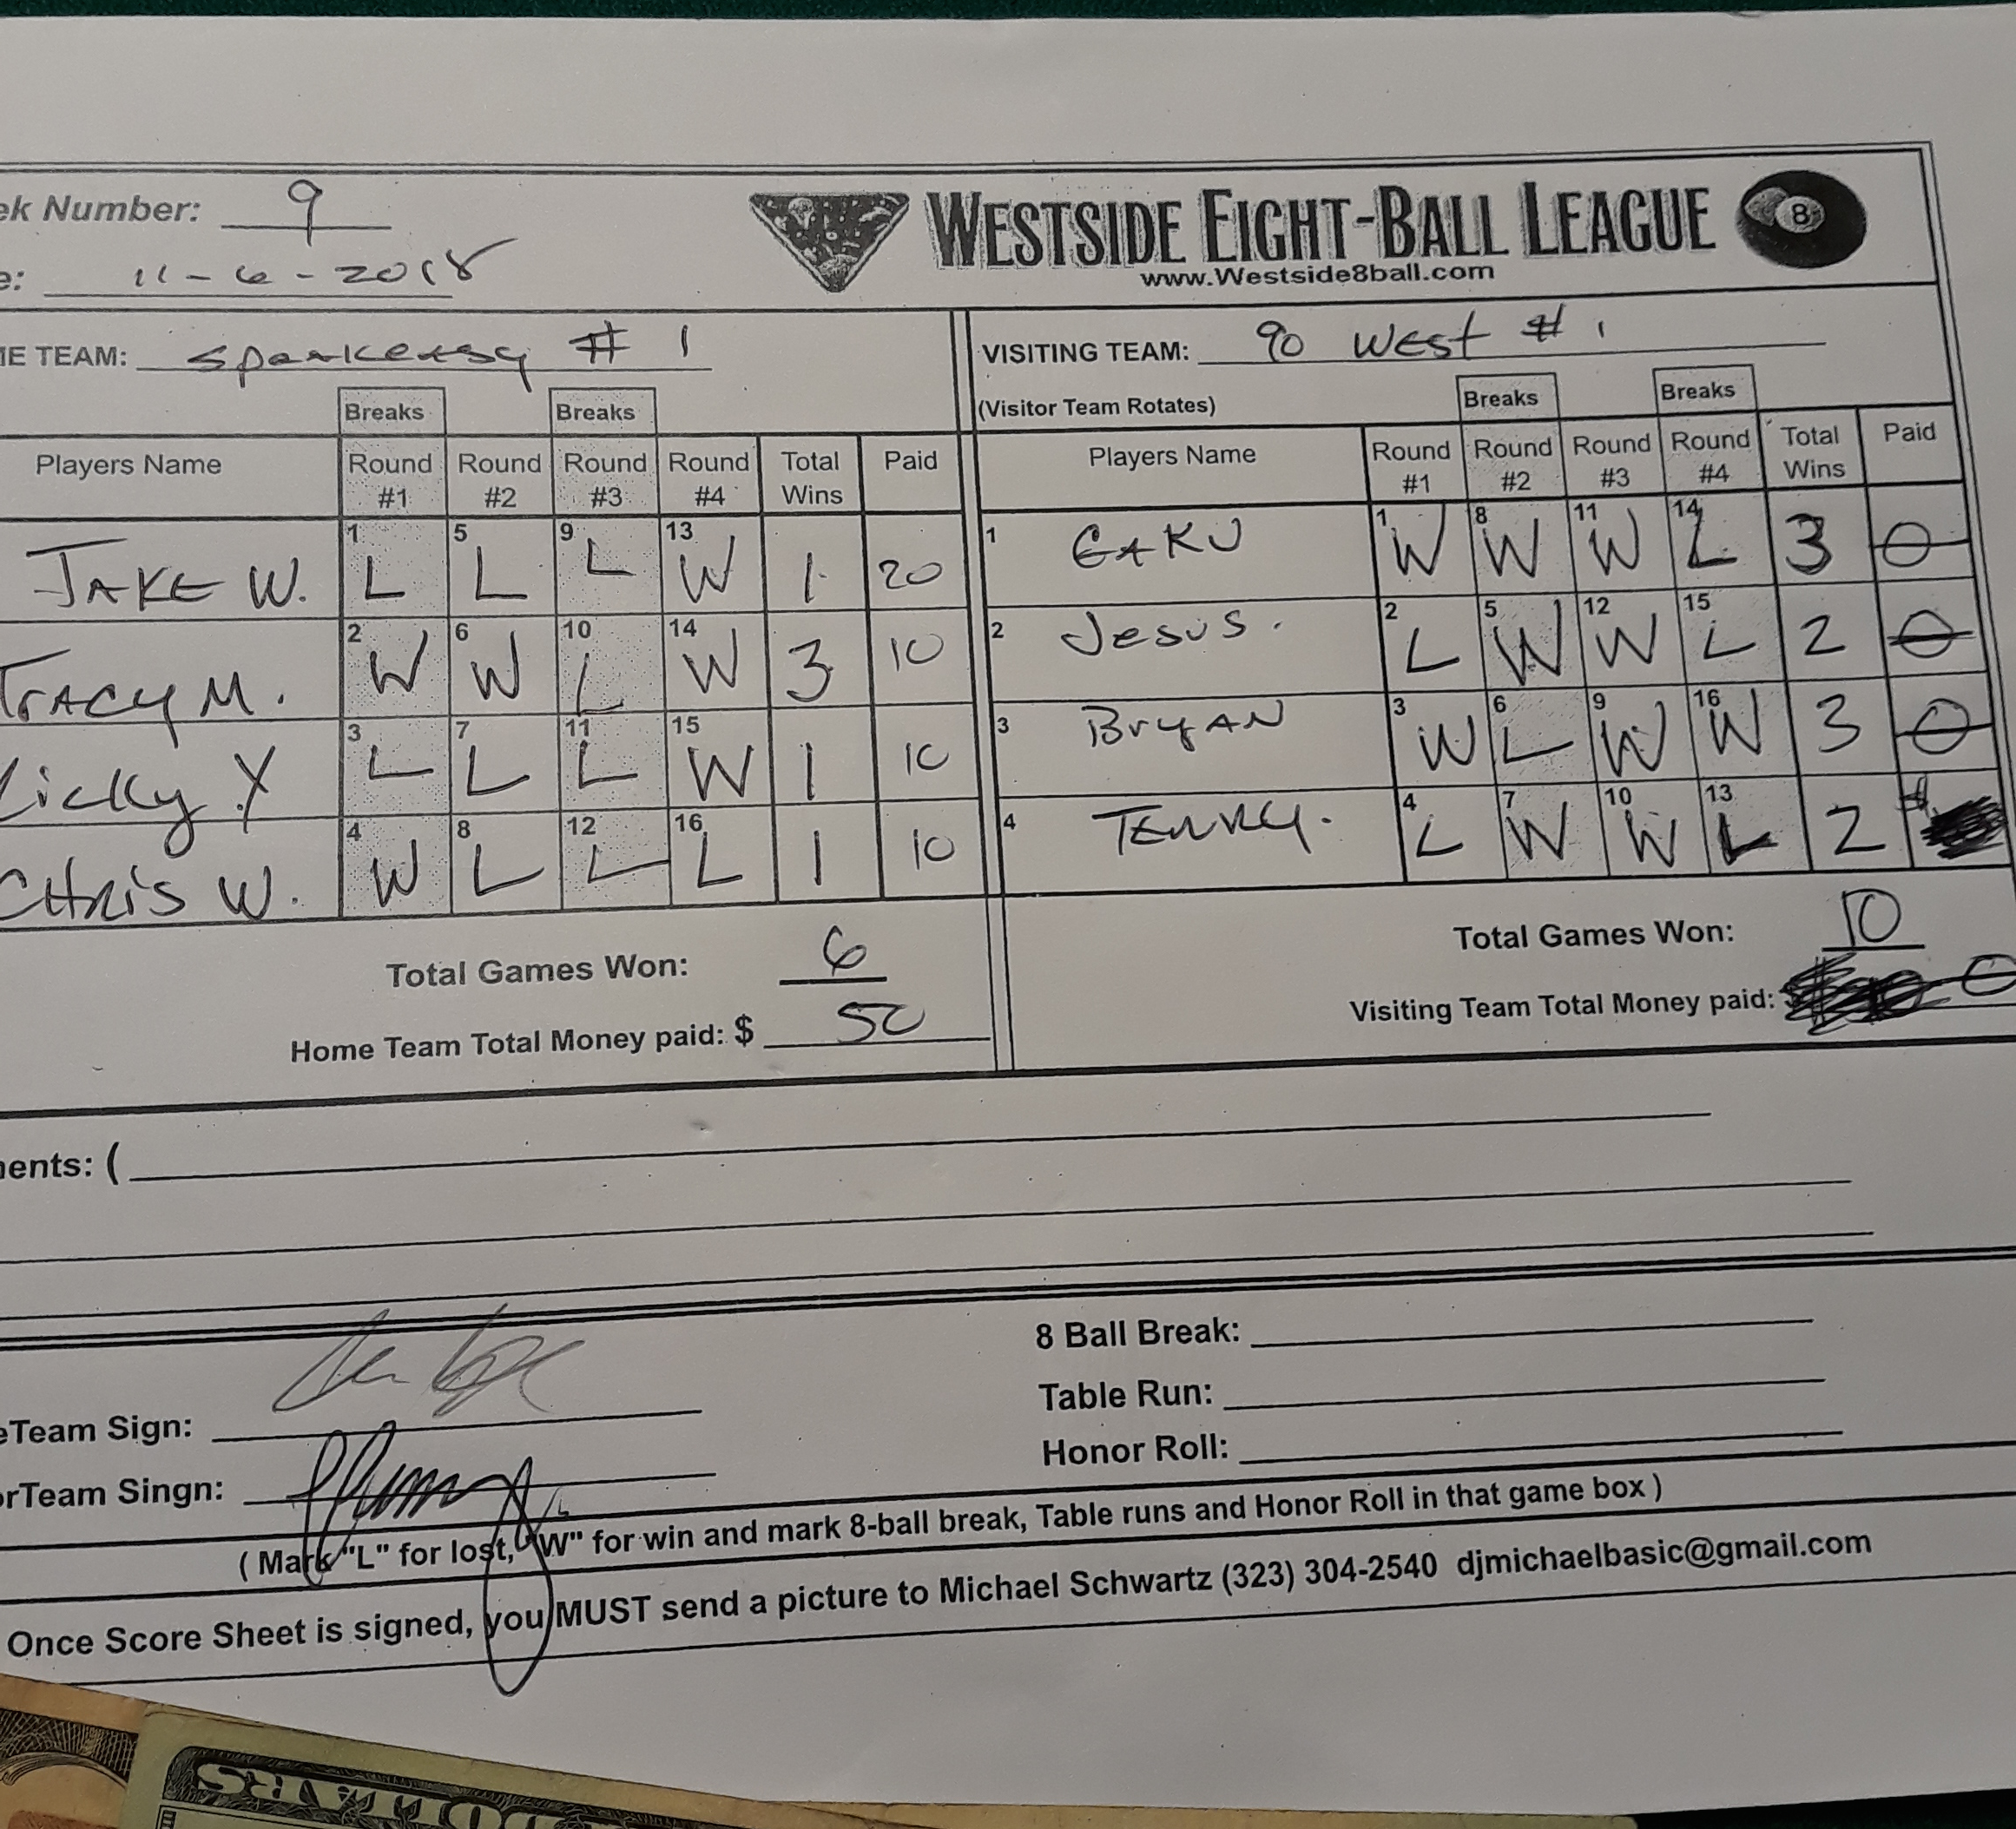 ek Number: 9
WESTSIDE EIGHT-BALL LEAGUE 8
e: 11-6-2018
www.Westside8ball.com
ME TEAM: Speakeasy # 1
VISITING TEAM: 90 West # 1
Breaks Breaks
(Visitor Team Rotates) Breaks Breaks
Players Name Round #1 Round #2 Round #3 Round #4 Total Wins Paid
JAKE W. 1 L 5 L 9 L 13 W 1 20
TRACY M. 2 W 6 W 10 L 14 W 3 10
icky Y 3 L 7 L 11 L 15 W 1 10
CHRIS W. 4 W 8 L 12 L 16 L 1 10
Total Games Won: 6
Home Team Total Money paid: $ 50
Players Name Round #1 Round #2 Round #3 Round #4 Total Wins Paid
1 GAKU 1 W 8 W 11 W 14 L 3 0
2 Jesus. 2 L 5 W 12 W 15 L 2 0
3 BryAN 3 W 6 L 9 W 16 W 3 0
4 4 L 7 W 10 W 13 L 2
Total Games Won: 10
Visiting Team Total Money paid: $ 0
ents: (
eTeam Sign:
8 Ball Break:
Table Run:
orTeam Singn:
Honor Roll:
( Mark "L" for lost, "W" for win and mark 8-ball break, Table runs and Honor Roll in that game box )
Once Score Sheet is signed, you MUST send a picture to Michael Schwartz (323) 304-2540 djmichaelbasic@gmail.com
DOLLARS